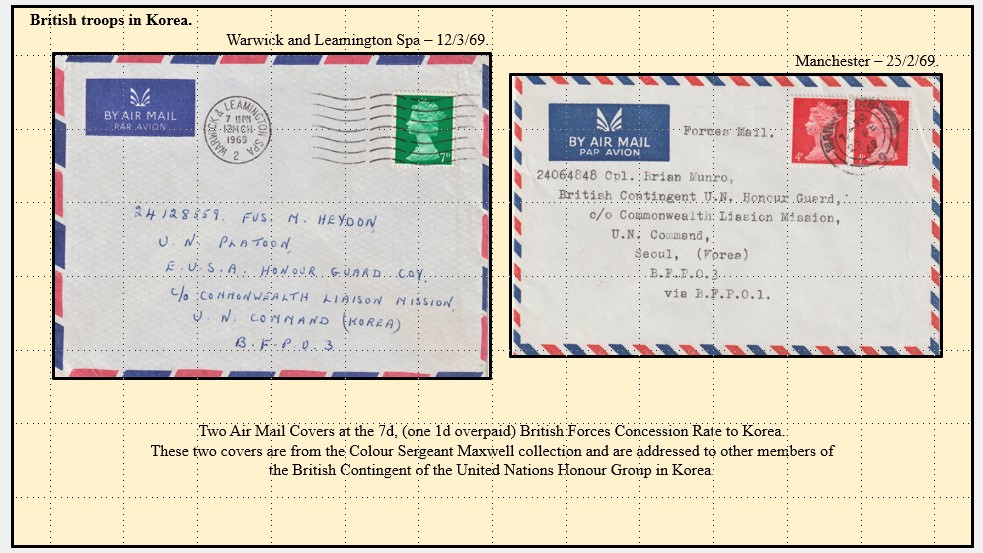 British troops in Korea.
Warwick and Leamington Spa – 12/3/69.
BY AIR MAIL
PAR AVION
WARWICK & LEAMINGTON SPA
1969
2
7D
24128559. FUS. M. HEYDON
U. N. PLATOON,
E.U.S.A. HONOUR GUARD COY.
C/o COMMONWEALTH LIAISON MISSION,
U. N. COMMAND (KOREA)
B. F. P. O. 3.
Manchester – 25/2/69.
BY AIR MAIL
PAR AVION
Forces Mail.
4D
4D
24064848 Cpl. Brian Munro,
British Contingent U.N. Honour Guard,
c/o Commonwealth Liasion Mission,
U.N. Command,
Seoul, (Korea)
B.F.P.O.3.
via B.F.P.O.1.
Two Air Mail Covers at the 7d, (one 1d overpaid) British Forces Concession Rate to Korea.
These two covers are from the Colour Sergeant Maxwell collection and are addressed to other members of
the British Contingent of the United Nations Honour Group in Korea